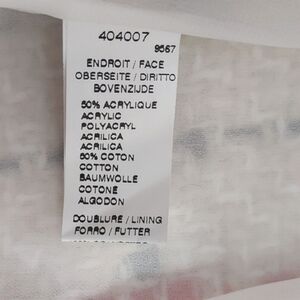 404007
9567
ENDROIT / FACE
OBERSEITE / DIRITTO
BOVENZIJDE
50% ACRYLIQUE
ACRYLIC
POLYACRYL
ACRILICA
ACRILICA
50% COTON
COTTON
BAUMWOLLE
COTONE
ALGODON
DOUBLURE / LINING
FORRO / FUTTER